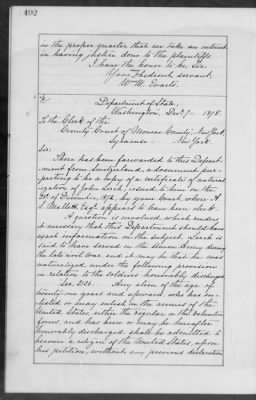 492
in the proper quarter that we take an interest
in having justice done to the plaintiffs.
I have the honor to be, Sir
Your Obedient servant,
Wm M. Evarts.
Department of State,
Washington, Dec. 7 1878.
To the Clerk of the
County Court of County, New York.
Syracuse New York.
Sir:
There has been forwarded to this Depart-
ment from Switzerland, a document pur-
porting to be a copy of a certificate of natural-
ization of John issued to him on the
of December, 1872, by your Court, where
Esq. appears to have been clerk.
A question is involved which renders
it necessary that this Department should have
exact information on the subject.
said to have served in the Union Army during
the late civil war and it may be that he was
naturalized under the following provision
in relation to the soldiers honorably discharged
Sec. 2166. Any alien of the age of
twenty-one years and upward, who has en-
listed or may enlist in the armies of the
United States, either the regular or the volunteer
forces, and has been or may be hereafter
honorably discharged, shall be admitted to
become a citizen of the United States, upon
his petition, without any previous declaration